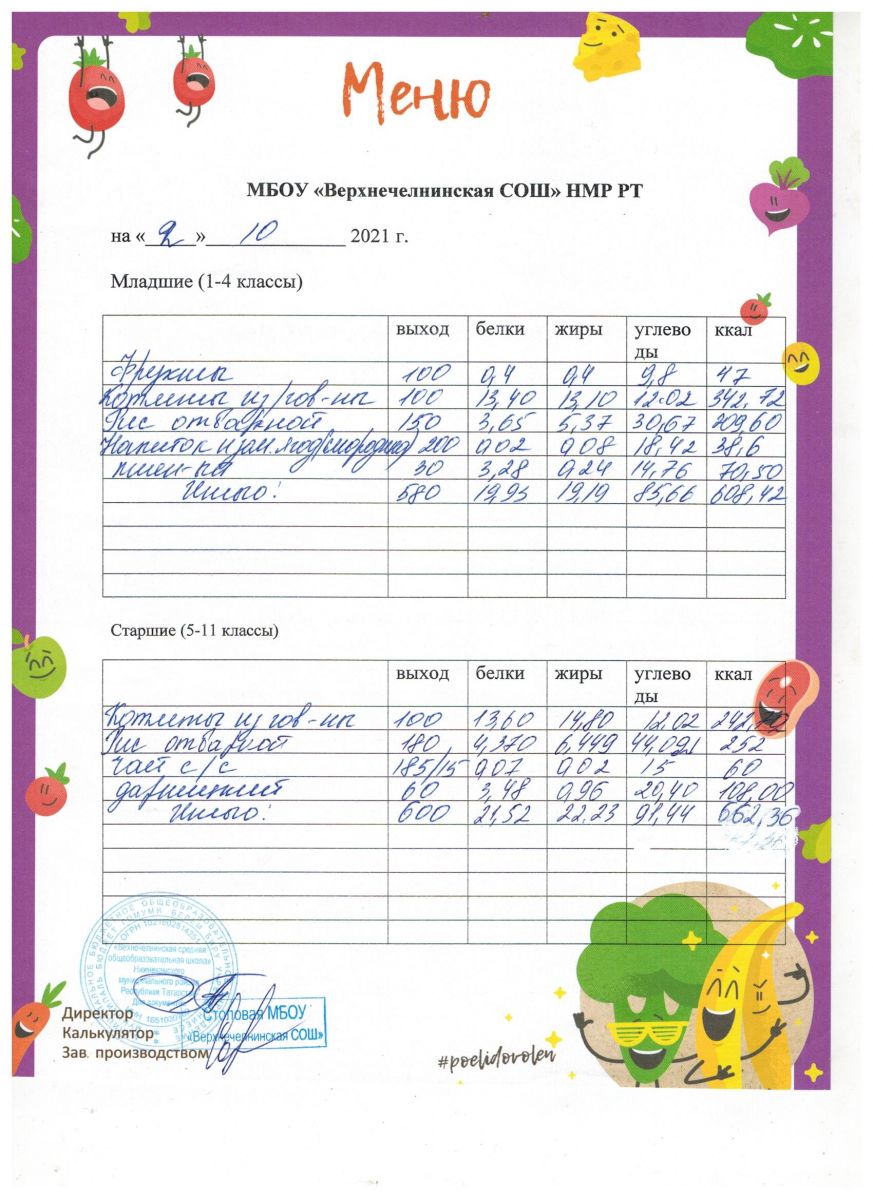 Меню
МБОУ «Верхнечелнинская СОШ» НМР РТ
на «2» 10 2021 г.
Младшие (1-4 классы)
выход белки жиры углево ды ккал
Фрукты 100 0,4 0,4 9,8 47
Котлеты из гов-ны 100 13,40 13,10 12.02 342,72
Рис отварной 150 3,65 5,37 30,67 209,60
Напиток из зам. ягод (смородина) 200 0,02 0,08 18,42 38,6
пшен-ый 30 3,28 0,24 14,76 70,50
Итого: 580 19,93 19,19 85,66 608,42
Старшие (5-11 классы)
выход белки жиры углево ды ккал
Котлеты из гов-ны 100 13,60 14,80 12,02 242,72
Рис отварной 180 4,370 6,449 44,091 252
Чай с/с 185/15 0,07 0,02 15 60
дарницкий 60 3,48 0,96 20,40 108,00
Итого: 600 21,52 22,23 91,44 662,36
«Верхнечелнинская средняя
общеобразовательная школа»
Нижнекамского
муниципального района
Республики Татарстан
Для документов
Директор
Калькулятор
Зав. производством
Столовая МБОУ
«Верхнечелнинская СОШ»
#poelidovolen